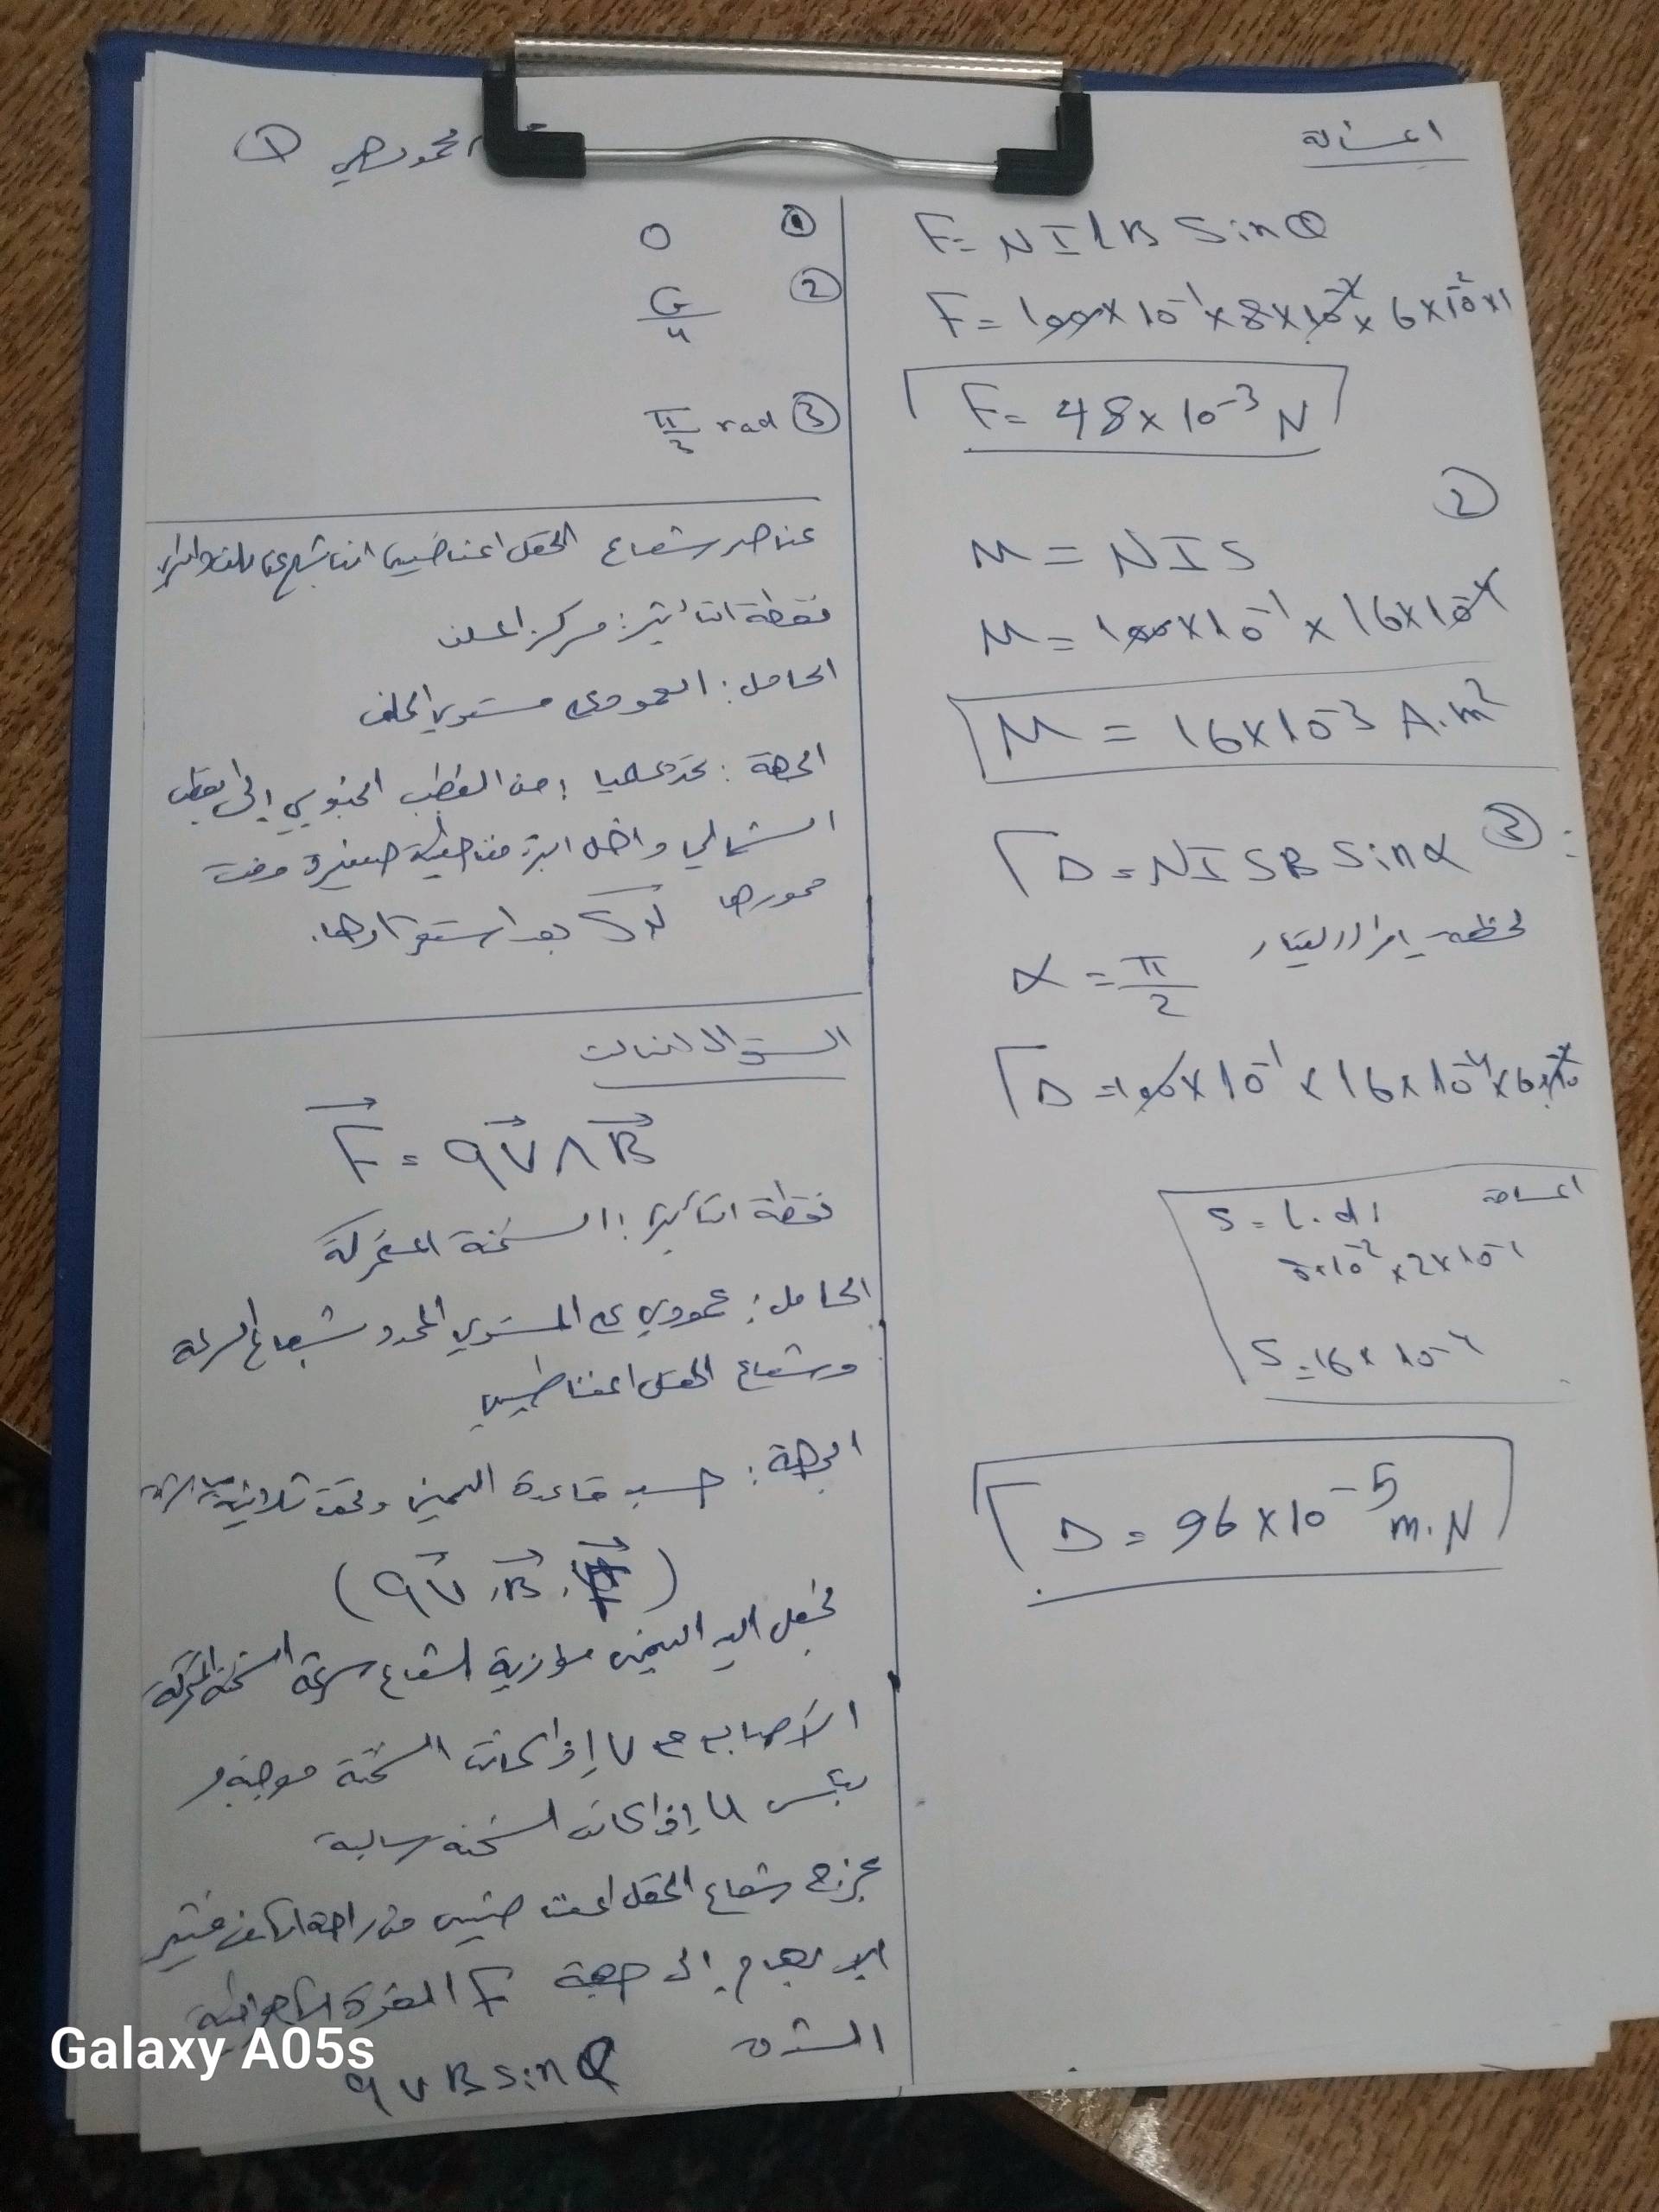 المسألة
F = N I L B sin θ
F = 100 × 10⁻¹ × 8 × 10⁻² × 6 × 10⁻² × 1
F = 48 × 10⁻³ N
②
M = N I S
M = 100 × 10⁻¹ × 16 × 10⁻⁴
M = 16 × 10⁻³ A.m²
③
Γ Δ = N I S B sin α
لحظة إمرار التيار
α = π/2
Γ Δ = 100 × 10⁻¹ × 16 × 10⁻⁴ × 6 × 10⁻²
المساحة
S = L . d
× 2 × 10⁻²
S = 16 × 10⁻⁴
Γ Δ = 96 × 10⁻⁵ m.N
محمود ①
① 0
② G/4
③ π/3 rad
عناصر شعاع الحقل المغناطيسي الناتج عن ملف دائري
نقطة التأثير: مركز الملف
الحامل: العمودي مستوي الملف
الجهة: تحدد عملياً: من القطب الجنوبي إلى القطب
الشمالي داخل ابرة مغناطيسية صغيرة
محورها بعد استقرارها.
السؤال الثالث
F = qV ∧ B
نقطة التأثير: الشحنة المتحركة
الحامل: عمودي على المستوي المحدد بشعاع السرعة
وشعاع الحقل المغناطيسي
الجهة: حسب قاعدة اليد اليمنى وتحقق ثلاثية
(qV, B, F)
نجعل اليد اليمنى موازية لشعاع سرعة الشحنة المتحركة
الأصابع مع V إذا كانت الشحنة موجبة و
بعكس V إذا كانت الشحنة سالبة
يخرج شعاع الحقل المغناطيسي من راحة الكف فيشير
الابهام إلى جهة F القوة المغناطيسية
الشدة
q v B sin θ
Galaxy A05s